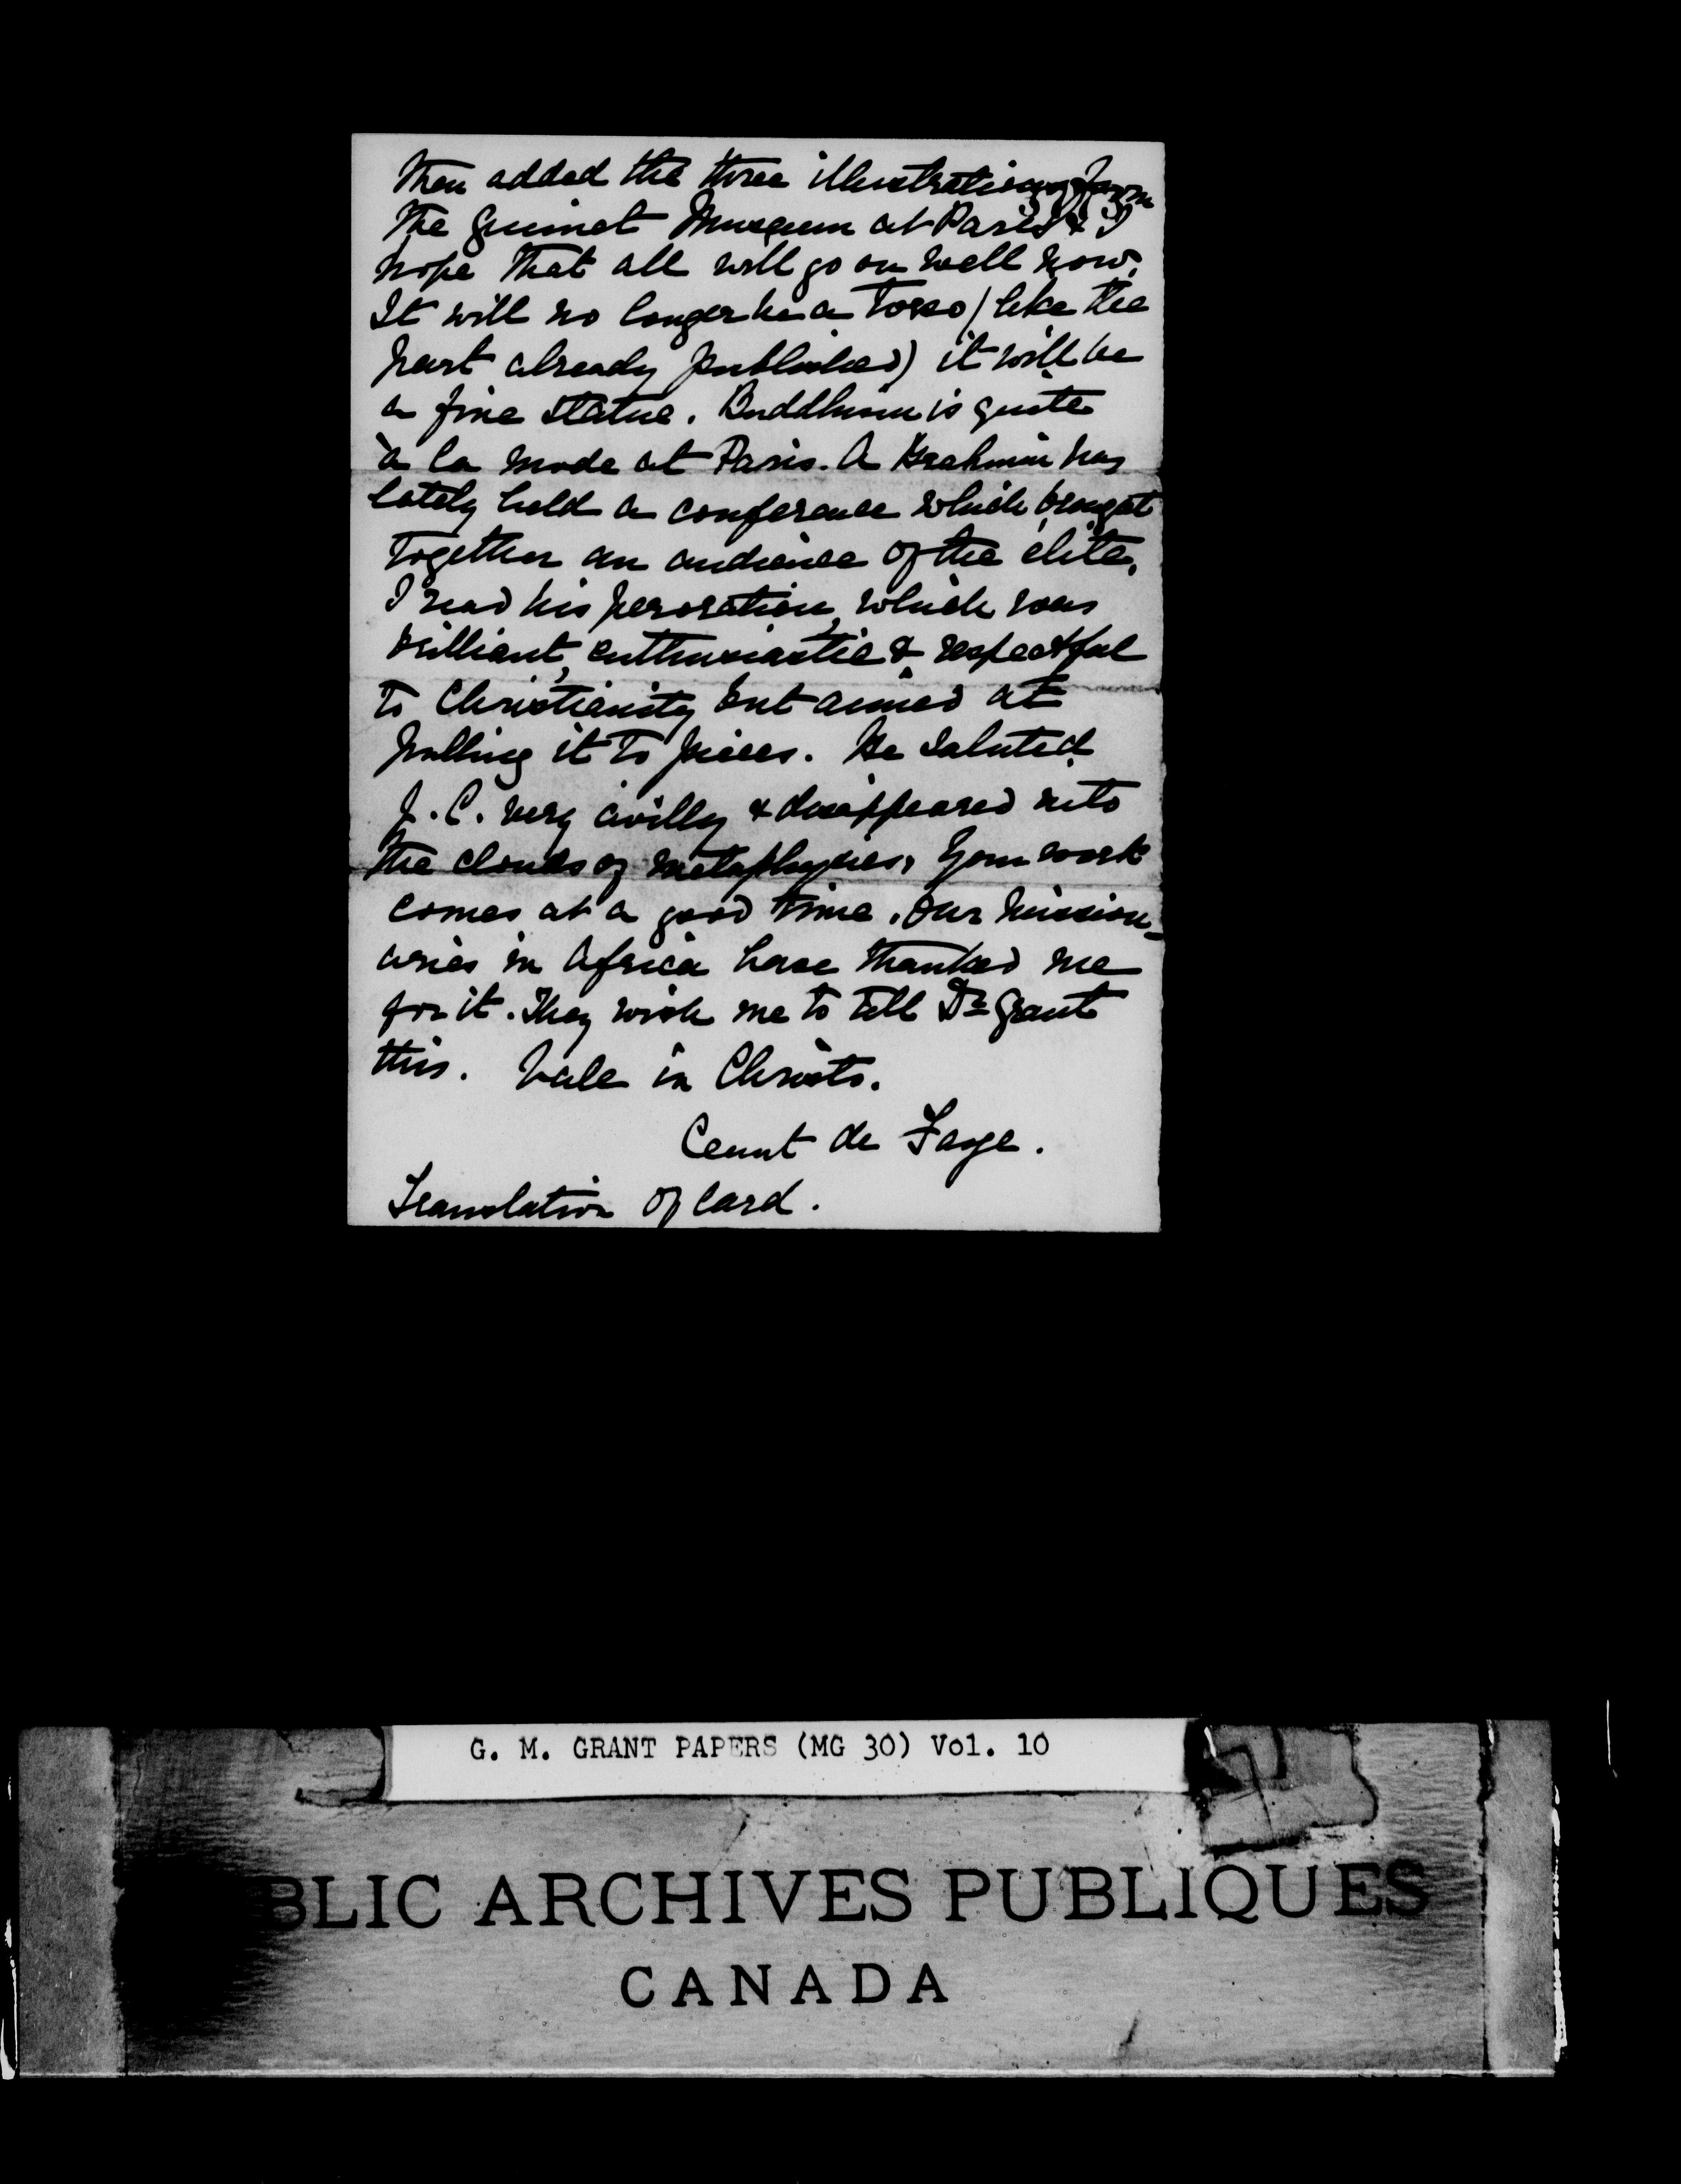 then added the three illustrations from
the Guimet Museum at Paris & I
hope that all will go on well now.
It will no longer be a Torso (like the
part already published) it will be
a fine statue. Buddhism is quite
à la mode at Paris. A Brahmin has
lately held a conference which brought
together an audience of the élite.
I read his peroration, which was
brilliant, enthusiastic & respectful
to Christianity but aimed at
pulling it to pieces. He saluted
J. C. very civilly & disappeared into
the clouds of metaphysics. Your work
comes at a good time. Our mission-
aries in Africa have thanked me
for it. They wish me to tell Dr Grant
this. Vale in Christo.
Count de Faye.
Translation of Card.
G. M. GRANT PAPERS (MG 30) Vol. 10
BLIC ARCHIVES PUBLIQUES
CANADA